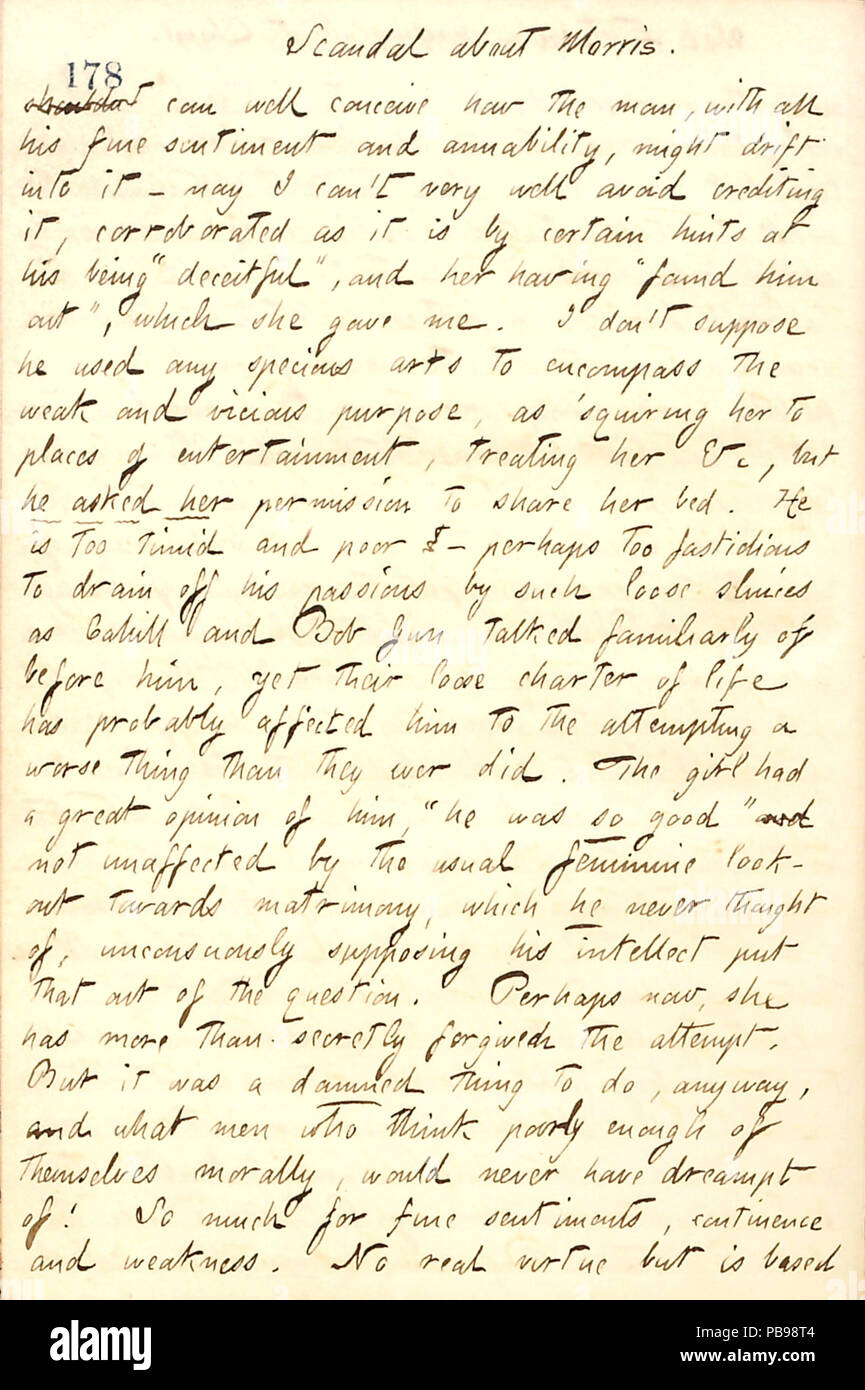 Scandal about Morris.
178
shouldn't can well conceive how the man, with all
his fine sentiment and amiability, might drift
into it — nay I can't very well avoid crediting
it, corroborated as it is by certain hints at
his being "deceitful", and her having "found him
out", which she gave me. I don't suppose
he used any specious arts to encompass the
weak and vicious purpose, as 'squiring her to
places of entertainment, treating her &c, but
he asked her permission to share her bed. He
is too timid and poor & — perhaps too fastidious
to drain off his passions by such loose sluices
as Cahill and Bob Gun talked familiarly of
before him, yet their loose charter of life
has probably affected him to the attempting a
worse thing than they ever did. The girl had
a great opinion of him, "he was so good" and
not unaffected by the usual feminine look-
out towards matrimony, which he never thought
of, unconsciously supposing his intellect put
that out of the question. Perhaps now, she
has more than secretly forgiven the attempt.
But it was a damned thing to do, anyway,
and what men who think poorly enough of
themselves morally, would never have dreampt
of! So much for fine sentiments, continence
and weakness. No real virtue but is based
alamy
Image ID: PB98T4
www.alamy.com